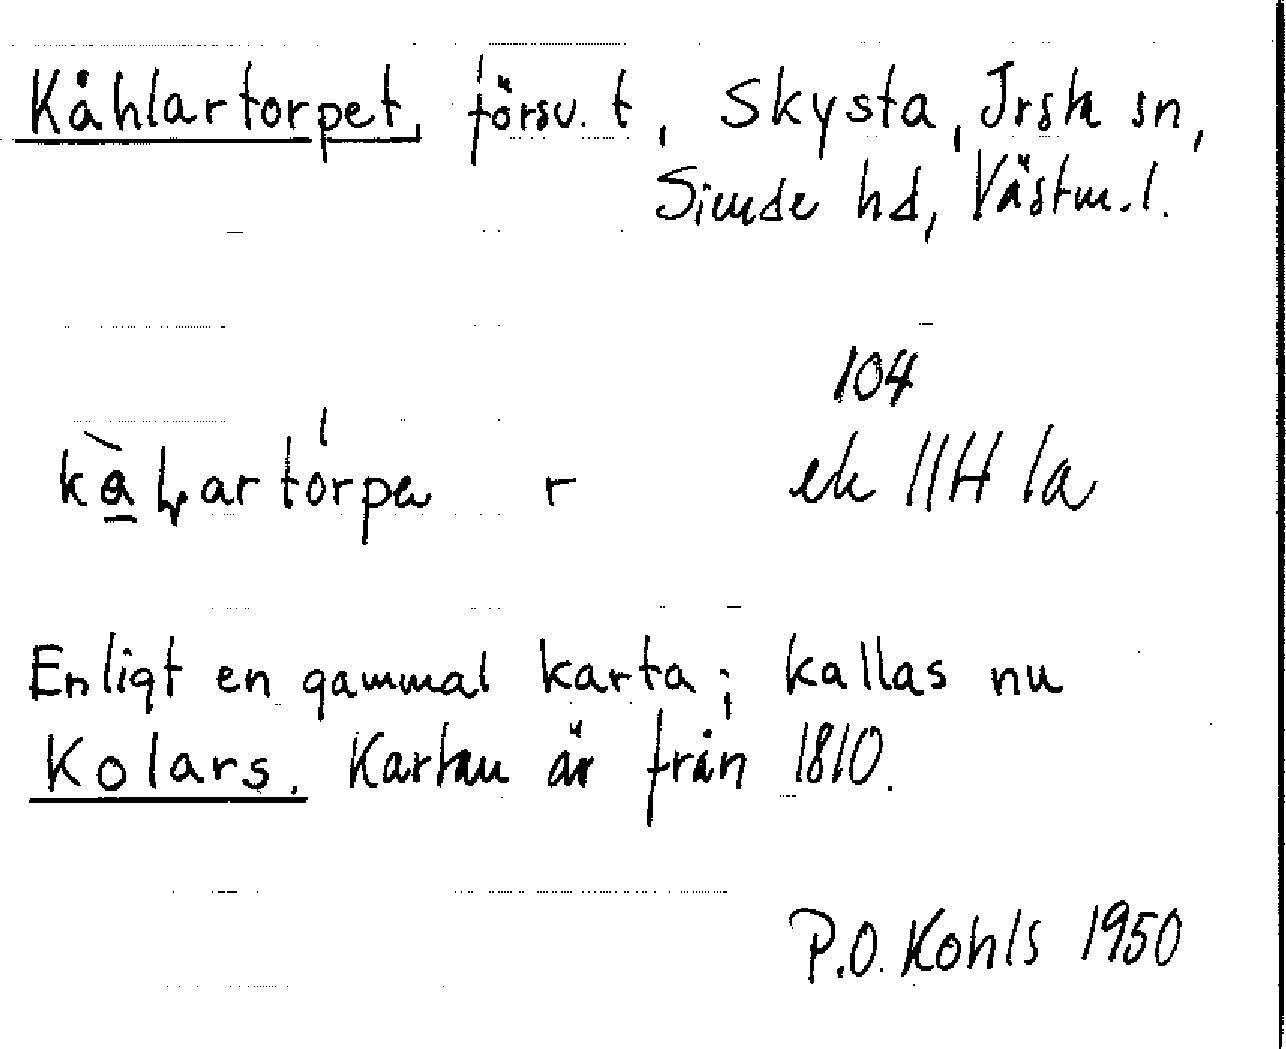 Kåhlartorpet, försv. t, Skysta, Irsta sn,
Siende hd, Västm.l.
104
r ek 11H 1a
Enligt en gammal karta; kallas nu
Kolars. Kartan är från 1810.
P.O. Kohls 1950